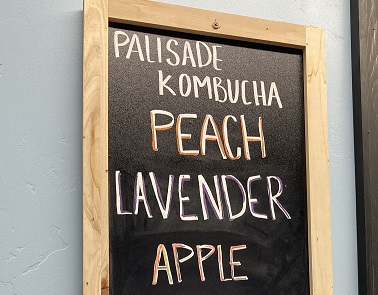 PALISADE
KOMBUCHA
PEACH
LAVENDER
APPLE